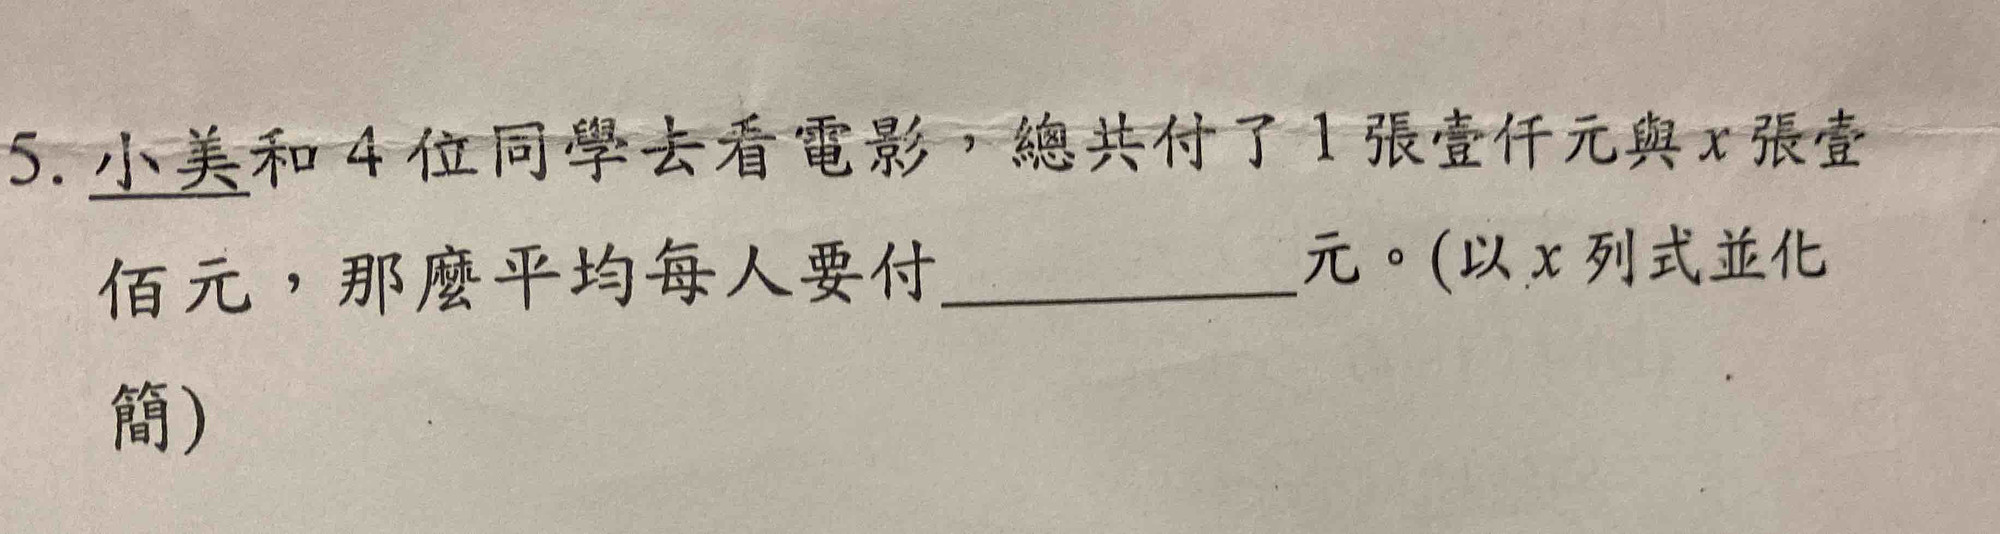 5. 小美和 4 位同學去看電影，總共付了 1 張壹仟元與 x 張壹
佰元，那麼平均每人要付__________元。(以 x 列式並化
簡)